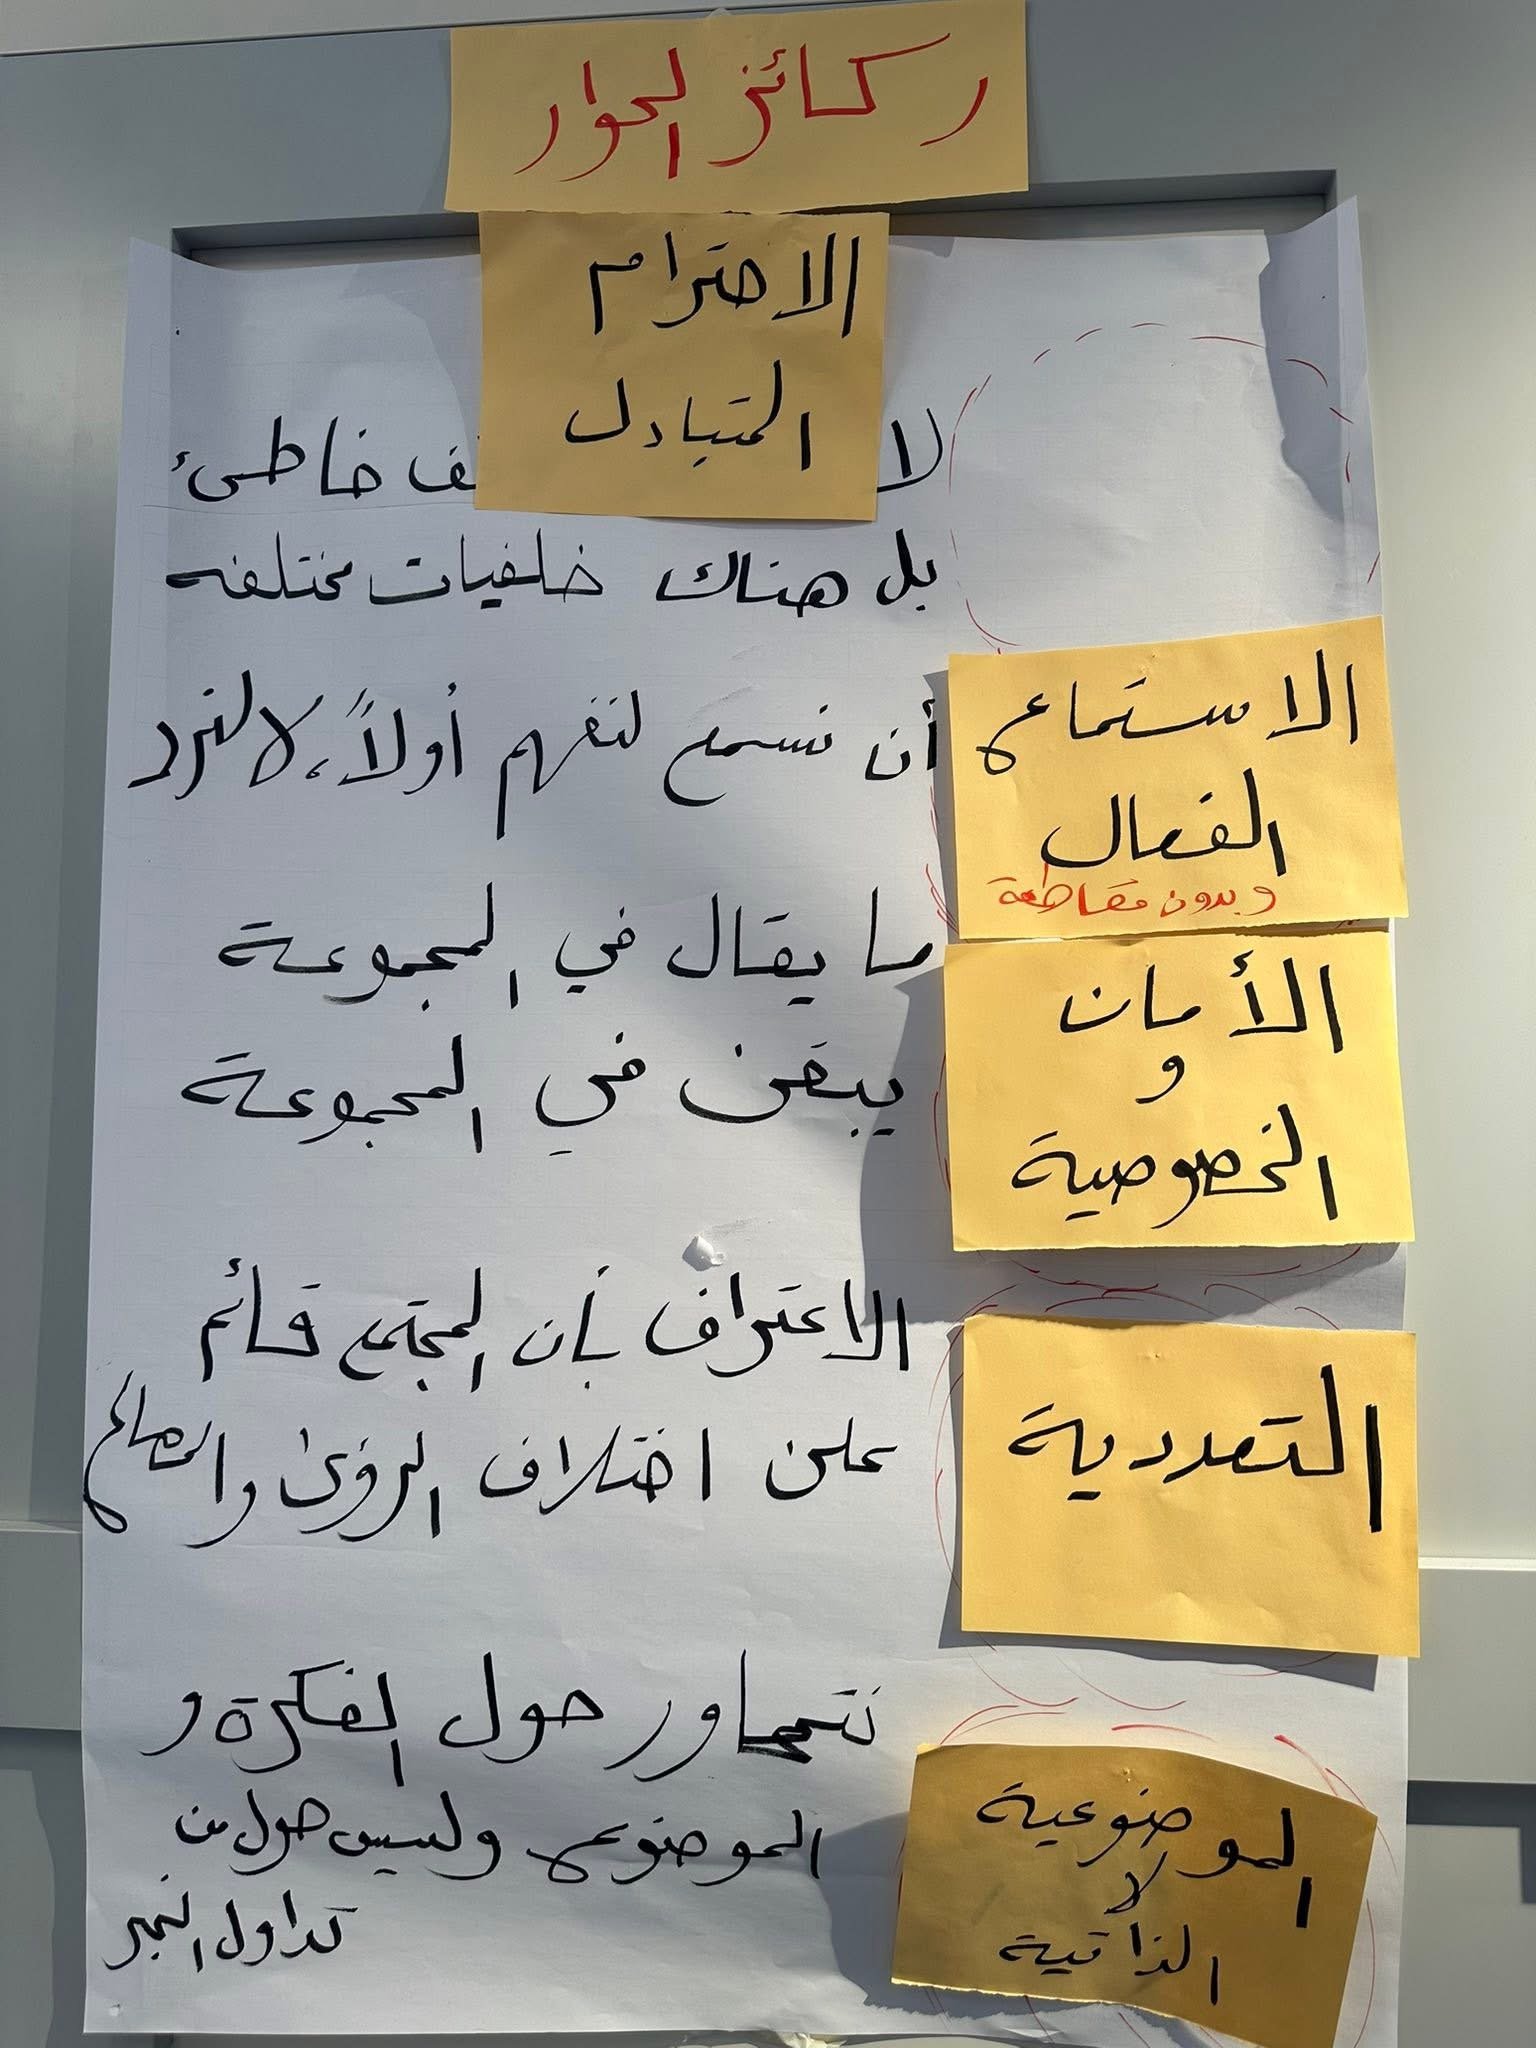 ركائز الحوار
الاحترام
المتبادل
لا خاطئ
بل هناك خلفيات مختلفه
الاستماع
الفعال
وبدون مقاطعة
أن نسمع لنفهم أولاً، لا لنرد
الأمان
و
الخصوصية
ما يقال في المجموعة
يبقى في المجموعة
التعددية
الاعتراف بأن المجتمع قائم
على اختلاف الرؤى والمصالح
الموضوعية
لا
الذاتية
نتحاور حول الفكرة و
الموضوع وليس حول من
تداول